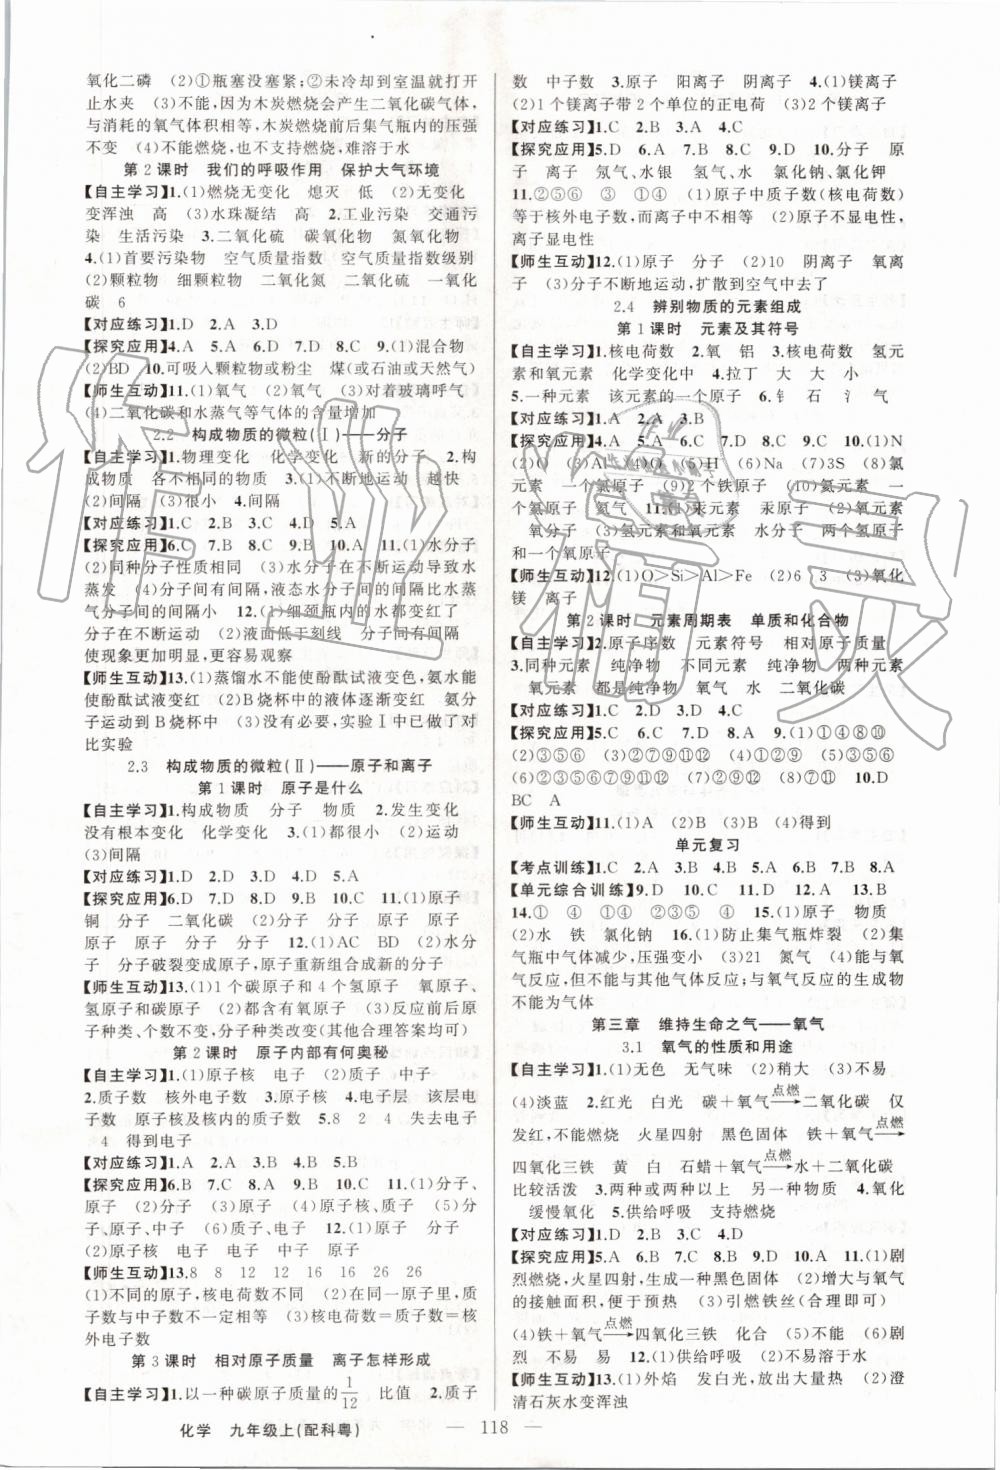 氧化二磷　(2)①瓶塞没塞紧;②未冷却到室温就打开
止水夹　(3)不能,因为木炭燃烧会产生二氧化碳气体,
与消耗的氧气体积相等,木炭燃烧前后集气瓶内的压强
不变　(4)不能燃烧,也不支持燃烧,难溶于水
第2课时　我们的呼吸作用　保护大气环境
【自主学习】1.(1)燃烧无变化　熄灭　低　(2)无变化
变浑浊　高　(3)水珠凝结　高　2.工业污染　交通污
染　生活污染　3.二氧化硫　碳氧化物　氮氧化物
4.(1)首要污染物　空气质量指数　空气质量指数级别
(2)颗粒物　细颗粒物　二氧化氮　二氧化硫　一氧化
碳　6
【对应练习】1.D　2.A　3.D
【探究应用】4.A　5.A　6.D　7.D　8.C　9.(1)混合物
(2)BD　10.可吸入颗粒物或粉尘　煤(或石油或天然气)
【师生互动】11.(1)氧气　(2)氧气　(3)对着玻璃呼气
(4)二氧化碳和水蒸气等气体的含量增加
2.2　构成物质的微粒(Ⅰ)——分子
【自主学习】1.物理变化　化学变化　新的分子　2.构
成物质　各不相同的物质　3.(1)不断地运动　越快
(2)间隔　(3)很小　4.间隔
【对应练习】1.C　2.B　3.C　4.D　5.A
【探究应用】6.C　7.C　8.B　9.B　10.A　11.(1)水分子
(2)同种分子性质相同　(3)水分子在不断运动导致水
蒸发　(4)分子间有间隔,液态水分子间的间隔比水蒸
气分子间的间隔小　12.(1)细颈瓶内的水都变红了
分子在不断运动　(2)液面低于刻线　分子间有间隔
使现象更加明显,更容易观察
【师生互动】13.(1)蒸馏水不能使酚酞试液变色,氨水能
使酚酞试液变红　(2)B烧杯中的液体逐渐变红　氨分
子运动到B烧杯中　(3)没有必要,实验Ⅰ中已做了对
比实验
2.3　构成物质的微粒(Ⅱ)——原子和离子
第1课时　原子是什么
【自主学习】1.构成物质　分子　物质　2.发生变化
没有根本变化　化学变化　3.(1)都很小　(2)运动
(3)间隔
【对应练习】1.D　2.D　3.D　4.D　5.A
【探究应用】6.D　7.D　8.D　9.C　10.C　11.(1)原子
铜　分子　二氧化碳　(2)分子　分子　原子　原子
原子　原子　分子　分子　12.(1)AC　BD　(2)水分
子　分子破裂变成原子,原子重新组合成新的分子
【师生互动】13.(1)1个碳原子和4个氢原子　氧原子、
氢原子和碳原子　(2)都含有氧原子　(3)反应前后原
子种类、个数不变,分子种类改变(其他合理答案均可)
第2课时　原子内部有何奥秘
【自主学习】1.(1)原子核　电子　(2)质子　中子
2.质子数　核外电子数　3.原子核　4.电子层　该层电
子数　原子核及核内的质子数　5.8　2　4　失去电子
4　得到电子
【对应练习】1.D　2.A　3.A　4.B　5.B
【探究应用】6.B　7.B　8.C　9.B　10.C　11.(1)分子、
原子　(2)分子　(3)原子　(4)原子核、质子　(5)分
子、原子、中子　(6)质子、电子　12.(1)原子　原子
(2)原子核　电子　电子　中子　原子
【师生互动】13.8　8　12　12　16　16　26　26
(1)不同的原子,核电荷数不同　(2)在同一原子里,质
子数与中子数不一定相等　(3)核电荷数=质子数=核
外电子数
第3课时　相对原子质量　离子怎样形成
【自主学习】1.以一种碳原子质量的1/12　比值　2.质子
数　中子数　3.原子　阳离子　阴离子　4.(1)镁离子
(2)1个镁离子带2个单位的正电荷　(3)2个镁离子
【对应练习】1.C　2.B　3.A　4.C
【探究应用】5.D　6.D　7.D　8.C　9.B　10.分子　原
子　离子　氖气、水银　氢气、水　氯化钠、氯化钾
11.②⑤⑥　③　①④　(1)原子中质子数(核电荷数)
等于核外电子数,而离子中不相等　(2)原子不显电性,
离子显电性
【师生互动】12.(1)原子　分子　(2)10　阴离子　氧离
子　(3)分子不断地运动,扩散到空气中去了
2.4　辨别物质的元素组成
第1课时　元素及其符号
【自主学习】1.核电荷数　2.氧　铝　3.核电荷数　氢元
素和氧元素　化学变化中　4.拉丁　大　大　小
5.一种元素　该元素的一个原子　6.钅　石　氵　气
【对应练习】1.A　2.A　3.B
【探究应用】4.A　5.A　6.C　7.D　8.C　9.C　10.(1)N
(2)O　(3)Al　(4)O　(5)H　(6)Na　(7)3S　(8)氯
元素　一个氯原子　(9)2个铁原子　(10)氦元素　一
个氦原子　氦气　11.(1)汞元素　汞原子　(2)氧元素
氧分子　(3)氢元素和氧元素　水分子　两个氢原子
和一个氧原子
【师生互动】12.(1)O>Si>Al>Fe　(2)6　3　(3)氧化
镁　离子
第2课时　元素周期表　单质和化合物
【自主学习】1.原子序数　元素符号　相对原子质量
3.同种元素　纯净物　不同元素　纯净物　两种元素
氧元素　都是纯净物　氧气　水　二氧化碳
【对应练习】1.C　2.B　3.D　4.C
【探究应用】5.C　6.C　7.B　8.A　9.(1)①④⑧⑩
(2)③⑤⑥　(3)②⑦⑨⑪⑫　(4)①②　(5)③⑤⑥
(6)②⑦⑨⑪⑫　(7)⑤⑥　(8)⑦⑪　10.D
BC　A
【师生互动】11.(1)A　(2)B　(3)B　(4)得到
单元复习
【考点训练】1.C　2.A　3.B　4.C　5.B　6.A　7.B　8.A
【单元综合训练】9.D　10.C　11.D　12.A　13.B
14.①　④　①④　②③⑤　②④　15.(1)原子　物质
(2)水　铁　氯化钠　16.(1)防止集气瓶炸裂　(2)集
气瓶中气体减少,压强变小　(3)21　氮气　(4)能与氧
气反应,但不能与其他气体反应;与氧气反应的生成物
不能为气体
第三章　维持生命之气——氧气
3.1　氧气的性质和用途
【自主学习】1.(1)无色　无气味　(2)稍大　(3)不易
(4)淡蓝　2.红光　白光　碳+氧气 点燃→ 二氧化碳　仅
发红,不能燃烧　火星四射　黑色固体　铁+氧气 点燃→
四氧化三铁　黄　白　石蜡+氧气 点燃→ 水+二氧化碳
比较活泼　3.两种或两种以上　另一种物质　4.氧化
缓慢氧化　5.供给呼吸　支持燃烧
【对应练习】1.D　2.C　3.A　4.D
【探究应用】5.A　6.B　7.C　8.B　9.D　10.A　11.(1)剧
烈燃烧,火星四射,生成一种黑色固体　(2)增大与氧气
的接触面积,便于预热　(3)引燃铁丝(合理即可)
(4)铁+氧气 点燃→ 四氧化三铁　化合　(5)不能　(6)剧
烈　不易　易　12.(1)供给呼吸　(2)不易溶于水
【师生互动】13.(1)外焰　发白光,放出大量热　(2)澄
清石灰水变浑浊
化学　九年级上(配科粤)　— 118 —
作业精灵